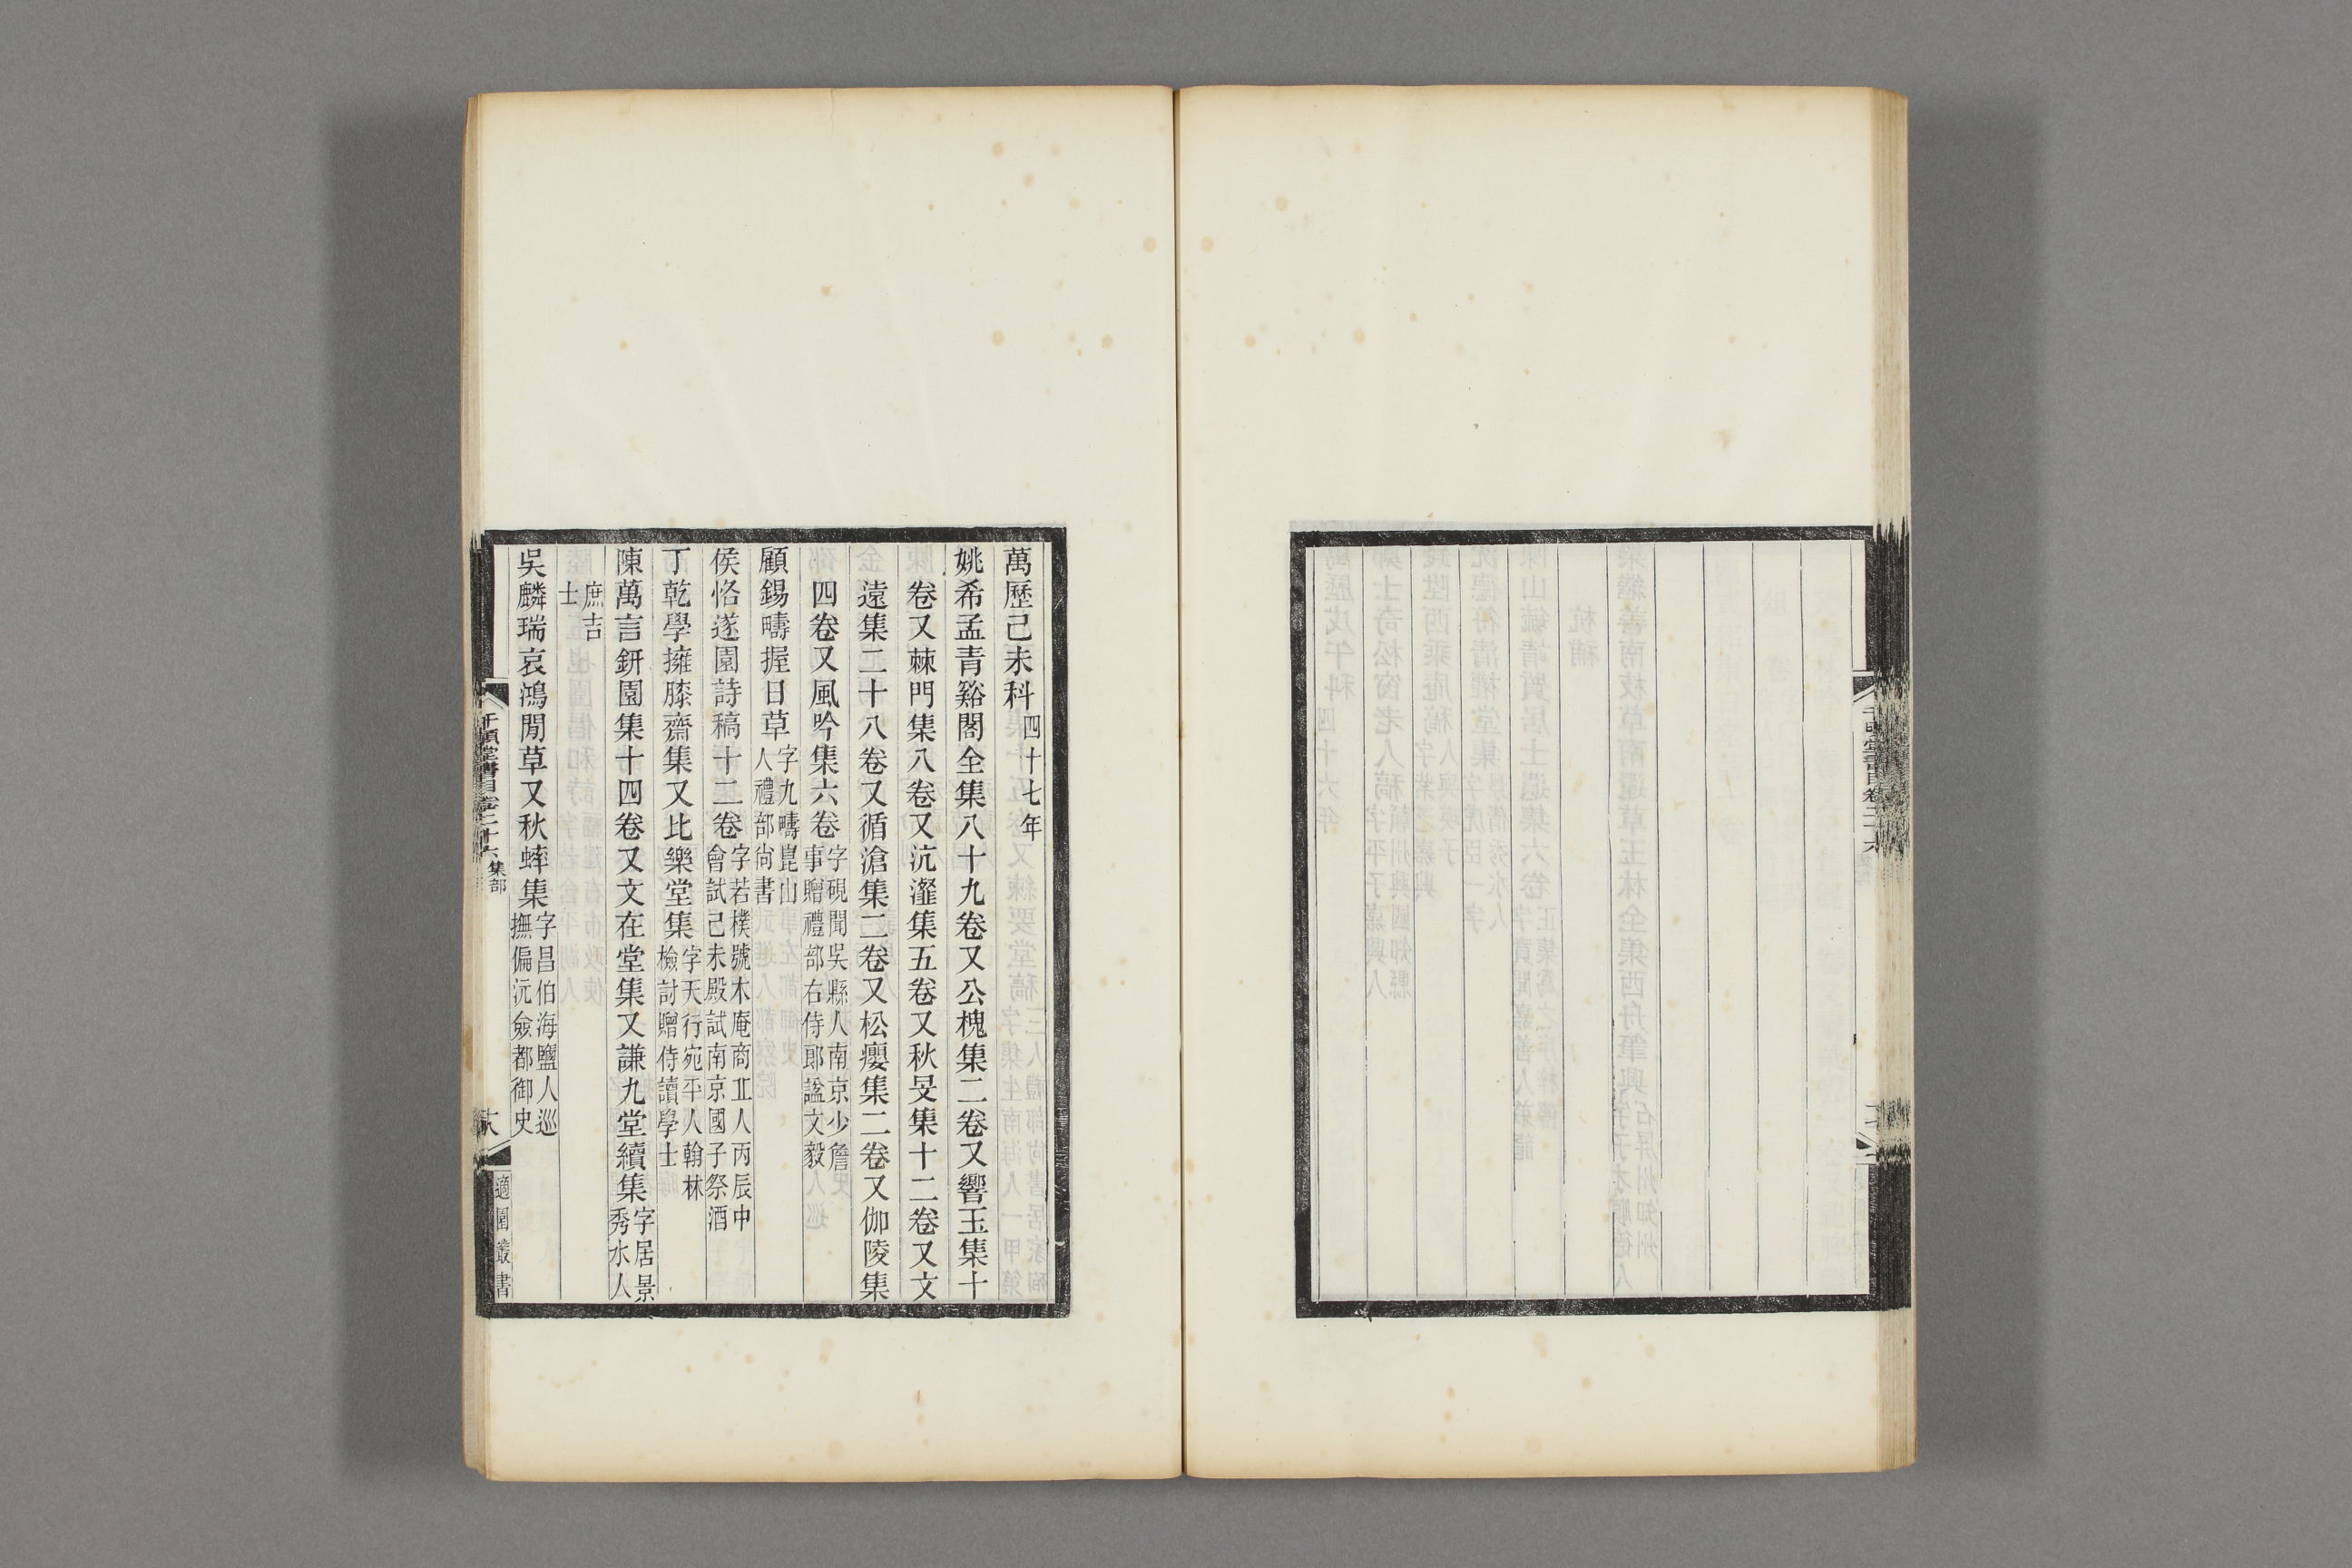 萬歷己未科四十七年
姚希孟青谿閣全集八十九卷又公槐集二卷又響玉集十
卷又棘門集八卷又沆瀣集五卷又秋旻集十二卷又文
遠集二十八卷又循滄集二卷又松癭集二卷又伽陵集
四卷又風吟集六卷字硯聞吳縣人南京少詹
事贈禮部右侍郎諡文毅
顧錫疇握日草字九疇崑山
人禮部尚書
侯恪遂園詩稿十二卷字若樸號木庵商丘人丙辰中
會試己未殿試南京國子祭酒
丁乾學擁膝齋集又比樂堂集字天行宛平人翰林
檢討贈侍讀學士
陳萬言鈃園集十四卷又文在堂集又謙九堂續集字居景
秀水人
庶吉
士
吳麟瑞哀鴻閒草又秋蟀集字昌伯海鹽人巡
撫偏沅僉都御史
千頃堂書目卷二十六集部
適園叢書